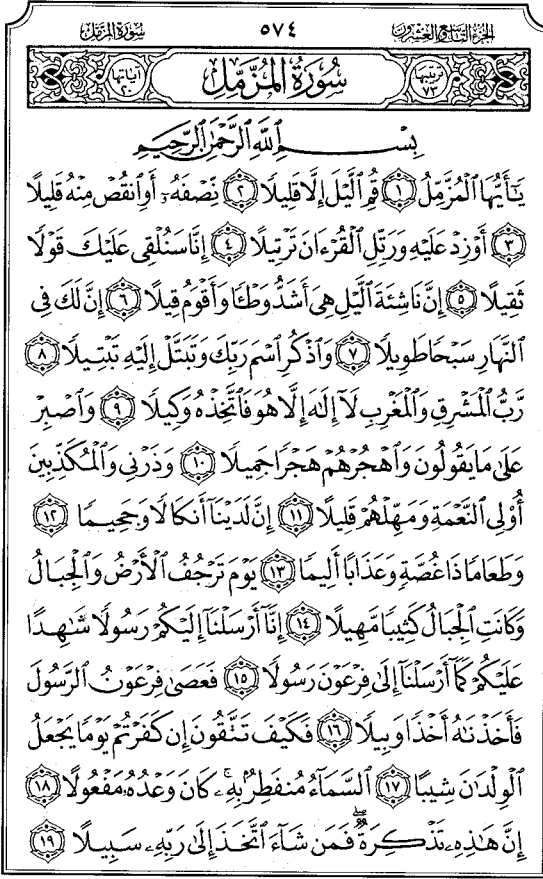 سُورَةُ المُزَّمِّل ٥٧٤ الجُزءُ التَّاسِعُ وَالعِشْرُونَ
ترتيبها ٧٣ سُورَةُ المُزَّمِّل آياتها ٢٠
بِسْمِ ٱللَّهِ ٱلرَّحْمَٰنِ ٱلرَّحِيمِ
يَٰٓأَيُّهَا ٱلْمُزَّمِّلُ ١ قُمِ ٱلَّيْلَ إِلَّا قَلِيلًا ٢ نِّصْفَهُۥٓ أَوِ ٱنقُصْ مِنْهُ قَلِيلًا
٣ أَوْ زِدْ عَلَيْهِ وَرَتِّلِ ٱلْقُرْءَانَ تَرْتِيلًا ٤ إِنَّا سَنُلْقِى عَلَيْكَ قَوْلًا
ثَقِيلًا ٥ إِنَّ نَاشِئَةَ ٱلَّيْلِ هِىَ أَشَدُّ وَطْـًٔا وَأَقْوَمُ قِيلًا ٦ إِنَّ لَكَ فِى
ٱلنَّهَارِ سَبْحًا طَوِيلًا ٧ وَٱذْكُرِ ٱسْمَ رَبِّكَ وَتَبَتَّلْ إِلَيْهِ تَبْتِيلًا ٨
رَّبُّ ٱلْمَشْرِقِ وَٱلْمَغْرِبِ لَآ إِلَٰهَ إِلَّا هُوَ فَٱتَّخِذْهُ وَكِيلًا ٩ وَٱصْبِرْ
عَلَىٰ مَا يَقُولُونَ وَٱهْجُرْهُمْ هَجْرًا جَمِيلًا ١٠ وَذَرْنِى وَٱلْمُكَذِّبِينَ
أُو۟لِى ٱلنَّعْمَةِ وَمَهِّلْهُمْ قَلِيلًا ١١ إِنَّ لَدَيْنَآ أَنكَالًا وَجَحِيمًا ١٢
وَطَعَامًا ذَا غُصَّةٍ وَعَذَابًا أَلِيمًا ١٣ يَوْمَ تَرْجُفُ ٱلْأَرْضُ وَٱلْجِبَالُ
وَكَانَتِ ٱلْجِبَالُ كَثِيبًا مَّهِيلًا ١٤ إِنَّآ أَرْسَلْنَآ إِلَيْكُمْ رَسُولًا شَٰهِدًا
عَلَيْكُمْ كَمَآ أَرْسَلْنَآ إِلَىٰ فِرْعَوْنَ رَسُولًا ١٥ فَعَصَىٰ فِرْعَوْنُ ٱلرَّسُولَ
فَأَخَذْنَٰهُ أَخْذًا وَبِيلًا ١٦ فَكَيْفَ تَتَّقُونَ إِن كَفَرْتُمْ يَوْمًا يَجْعَلُ
ٱلْوِلْدَٰنَ شِيبًا ١٧ ٱلسَّمَآءُ مُنفَطِرٌۢ بِهِۦ ۚ كَانَ وَعْدُهُۥ مَفْعُولًا ١٨
إِنَّ هَٰذِهِۦ تَذْكِرَةٌ ۖ فَمَن شَآءَ ٱتَّخَذَ إِلَىٰ رَبِّهِۦ سَبِيلًا ١٩